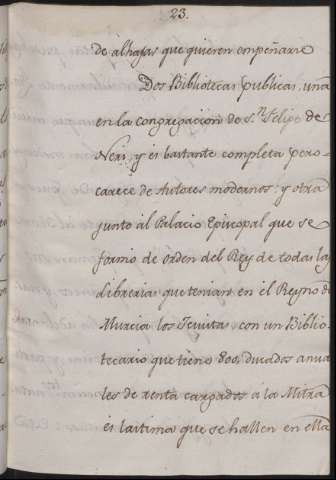 23.
de alhajas que quieren empeñarse
Dos Bibliotecas publicas, una
en la congregacion de S.n Felipe de
Neri, y es bastante completa pero
carece de Autores modernos: y otra
junto al Palacio Episcopal que se
formó de orden del Rey de todas las
librerias que tenian en el Reyno de
Murcia los Jesuitas, con un Biblio-
tecario que tiene 800. ducados anua
les de renta cargados a la Mitra
es lastima que se hallen en ella